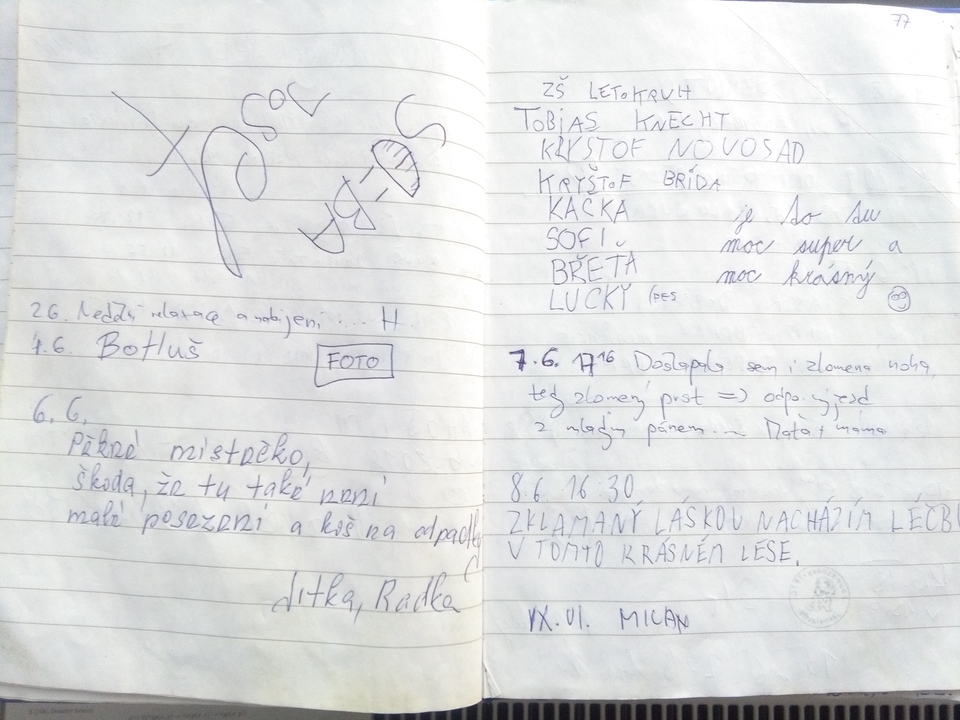 2.6. relaxace a nabíjení .... H.
4.6. BOHUŠ
FOTO
6.6.
Pěkné místečko,
škoda, že tu také není
malé posezení a koš na odpadky
Jitka, Radka
77
ZŠ LETOKRUH
TOBIAS KNECHT
KRYŠTOF NOVOSAD
KRYŠTOF BRÍDA
KAČKA
SOFI
BŘETA
LUCKY (PES
je to tu
moc super a
moc krásný
7.6. 17 16 Došlapala sem i zlomená noha,
tedy zlomený prst => odpo. výjezd
z mladým pánem... Máta + máma
8.6. 16:30
ZKLAMANÝ LÁSKOU NACHÁZÍM LÉČBU
V TOMTO KRÁSNÉM LESE.
IX.VI. MILAN